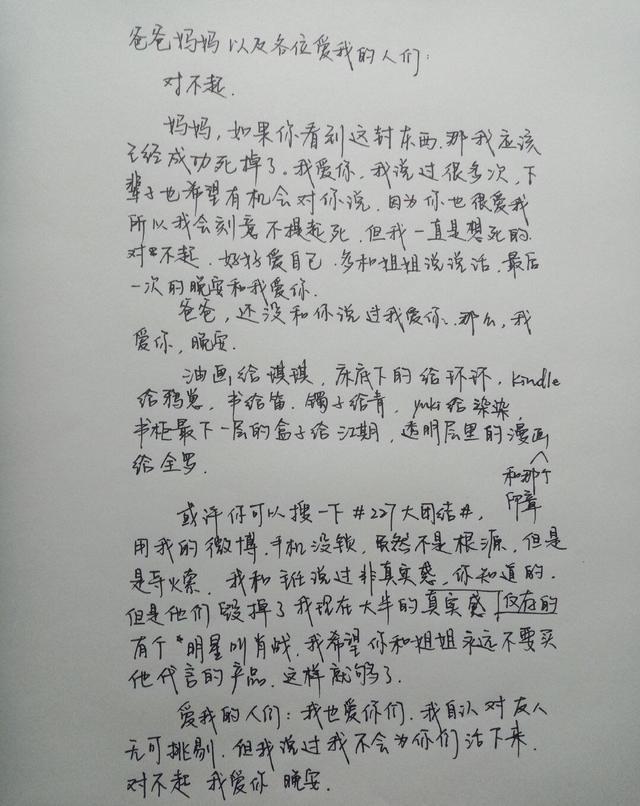 爸爸妈妈以及各位爱我的人们:
对不起.
妈妈,如果你看到这封东西.那我应该
已经成功死掉了。我爱你,我说过很多次,下
辈子也希望有机会对你说.因为你也很爱我
所以我会刻意不提起死.但我一直是想死的.
对不起.好好爱自己.多和姐姐说说话.最后
一次的晚安和我爱你.
爸爸,还没和你说过我爱你.那么,我
爱你,晚安.
油画给琪琪,床底下的给环环.kindle
给鸦崽,书给笛.镯子给青,yuki给染染,
书柜最下一层的盒子给江期,透明层里的漫画
和那个
印章
给全罗.
或许你可以搜一下#227大团结#,
用我的微博.手机没锁,虽然不是根源,但是
是导火索.我和主任说过非真实感,你知道的.
但是他们毁掉了我现在大半的真实感,仅存的
有个*明星叫肖战,我希望你和姐姐永远不要买
他代言的产品.这样就够了.
爱我的人们:我也爱你们.我自认对友人
无可挑剔.但我说过我不会为你们活下来.
对不起 我爱你 晚安.